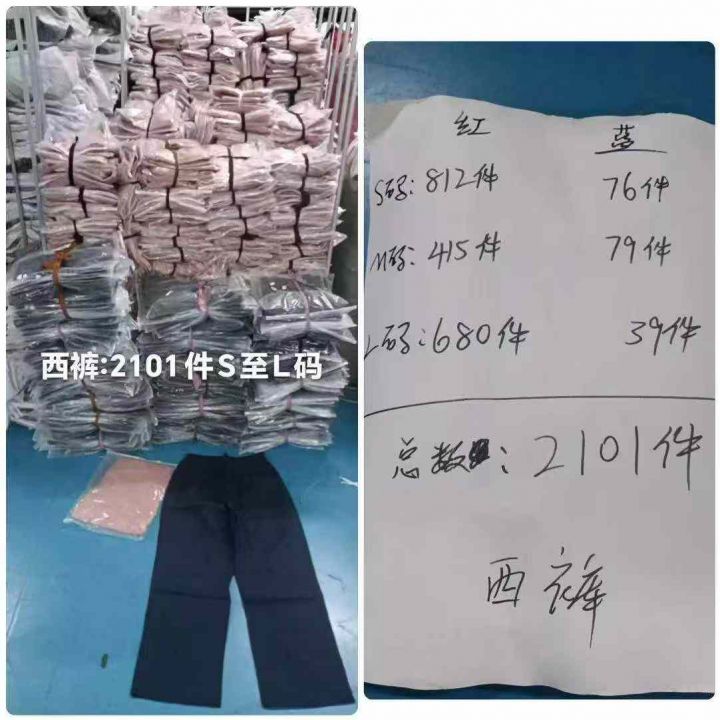 西裤:2101件S至L码
红 蓝
S码:812件 76件
M码:415件 79件
L码:680件 39件
总数:2101件
西裤